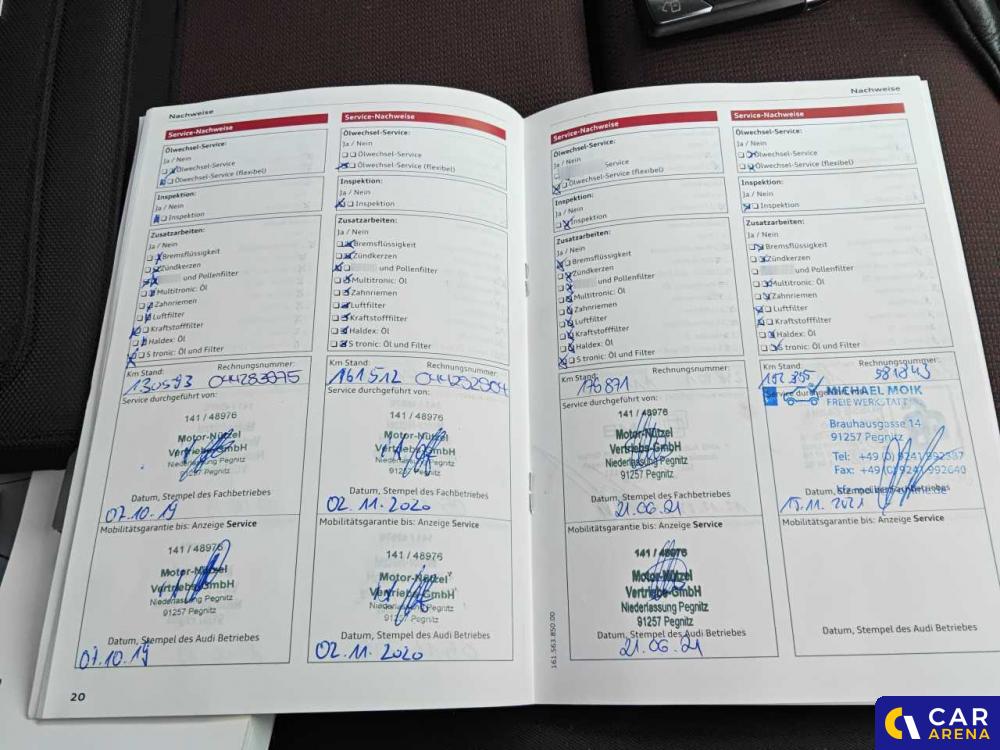 Nachweise
Service-Nachweise
Ölwechsel-Service:
Ja / Nein
Ölwechsel-Service
Ölwechsel-Service (flexibel)
Inspektion:
Ja / Nein
Inspektion
Zusatzarbeiten:
Ja / Nein
Bremsflüssigkeit
Zündkerzen
und Pollenfilter
Multitronic: Öl
Zahnriemen
Luftfilter
Kraftstofffilter
Haldex: Öl
S tronic: Öl und Filter
Km Stand:
Rechnungsnummer:
130593 044283975
Service durchgeführt von:
141 / 48976
Motor-Nützel
Vertriebs-GmbH
Niederlassung Pegnitz
91257 Pegnitz
Datum, Stempel des Fachbetriebes
07.10.19
Mobilitätsgarantie bis: Anzeige Service
141 / 48976
Motor-Nützel
Vertriebs-GmbH
Niederlassung Pegnitz
91257 Pegnitz
Datum, Stempel des Audi Betriebes
07.10.19
20
Service-Nachweise
Ölwechsel-Service:
Ja / Nein
Ölwechsel-Service
Ölwechsel-Service (flexibel)
Inspektion:
Ja / Nein
Inspektion
Zusatzarbeiten:
Ja / Nein
Bremsflüssigkeit
Zündkerzen
und Pollenfilter
Multitronic: Öl
Zahnriemen
Luftfilter
Kraftstofffilter
Haldex: Öl
S tronic: Öl und Filter
Km Stand:
Rechnungsnummer:
161512 044292904
Service durchgeführt von:
141 / 48976
Motor-Nützel
Vertriebs-GmbH
Niederlassung Pegnitz
91257 Pegnitz
Datum, Stempel des Fachbetriebes
02.11.2020
Mobilitätsgarantie bis: Anzeige Service
141 / 48976
Motor-Nützel
Vertriebs-GmbH
Niederlassung Pegnitz
91257 Pegnitz
Datum, Stempel des Audi Betriebes
02.11.2020
Service-Nachweise
Ölwechsel-Service:
Ja / Nein
Service
Ölwechsel-Service (flexibel)
Inspektion:
Ja / Nein
Inspektion
Zusatzarbeiten:
Ja / Nein
Bremsflüssigkeit
Zündkerzen
und Pollenfilter
Multitronic: Öl
Zahnriemen
Luftfilter
Kraftstofffilter
Haldex: Öl
S tronic: Öl und Filter
Km Stand:
Rechnungsnummer:
170871
Service durchgeführt von:
141 / 48976
Motor-Nützel
Vertriebs-GmbH
Niederlassung Pegnitz
91257 Pegnitz
Datum, Stempel des Fachbetriebes
21.06.21
Mobilitätsgarantie bis: Anzeige Service
141 / 48976
Motor-Nützel
Vertriebs-GmbH
Niederlassung Pegnitz
91257 Pegnitz
Datum, Stempel des Audi Betriebes
21.06.21
161.563.850.00
Nachweise
Service-Nachweise
Ölwechsel-Service:
Ja / Nein
Ölwechsel-Service
Ölwechsel-Service (flexibel)
Inspektion:
Ja / Nein
Inspektion
Zusatzarbeiten:
Ja / Nein
Bremsflüssigkeit
Zündkerzen
und Pollenfilter
Multitronic: Öl
Zahnriemen
Luftfilter
Kraftstofffilter
Haldex: Öl
S tronic: Öl und Filter
Km Stand:
Rechnungsnummer:
581843
Service
MICHAEL MOIK
FREIE WERKSTATT
Brauhausgasse 14
91257 Pegnitz
Tel: +49 (0) 9241 992387
Fax: +49 (0) 9241 992640
Datum,
15.11.2021
Mobilitätsgarantie bis: Anzeige Service
Datum, Stempel des Audi Betriebes
CAR
ARENA